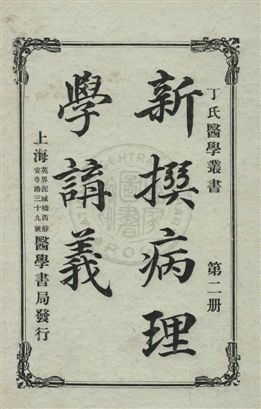 丁氏醫學叢書
第二册
新撰病理
學講義
上海英界泥城橋西靜安寺路三十九號醫學書局發行